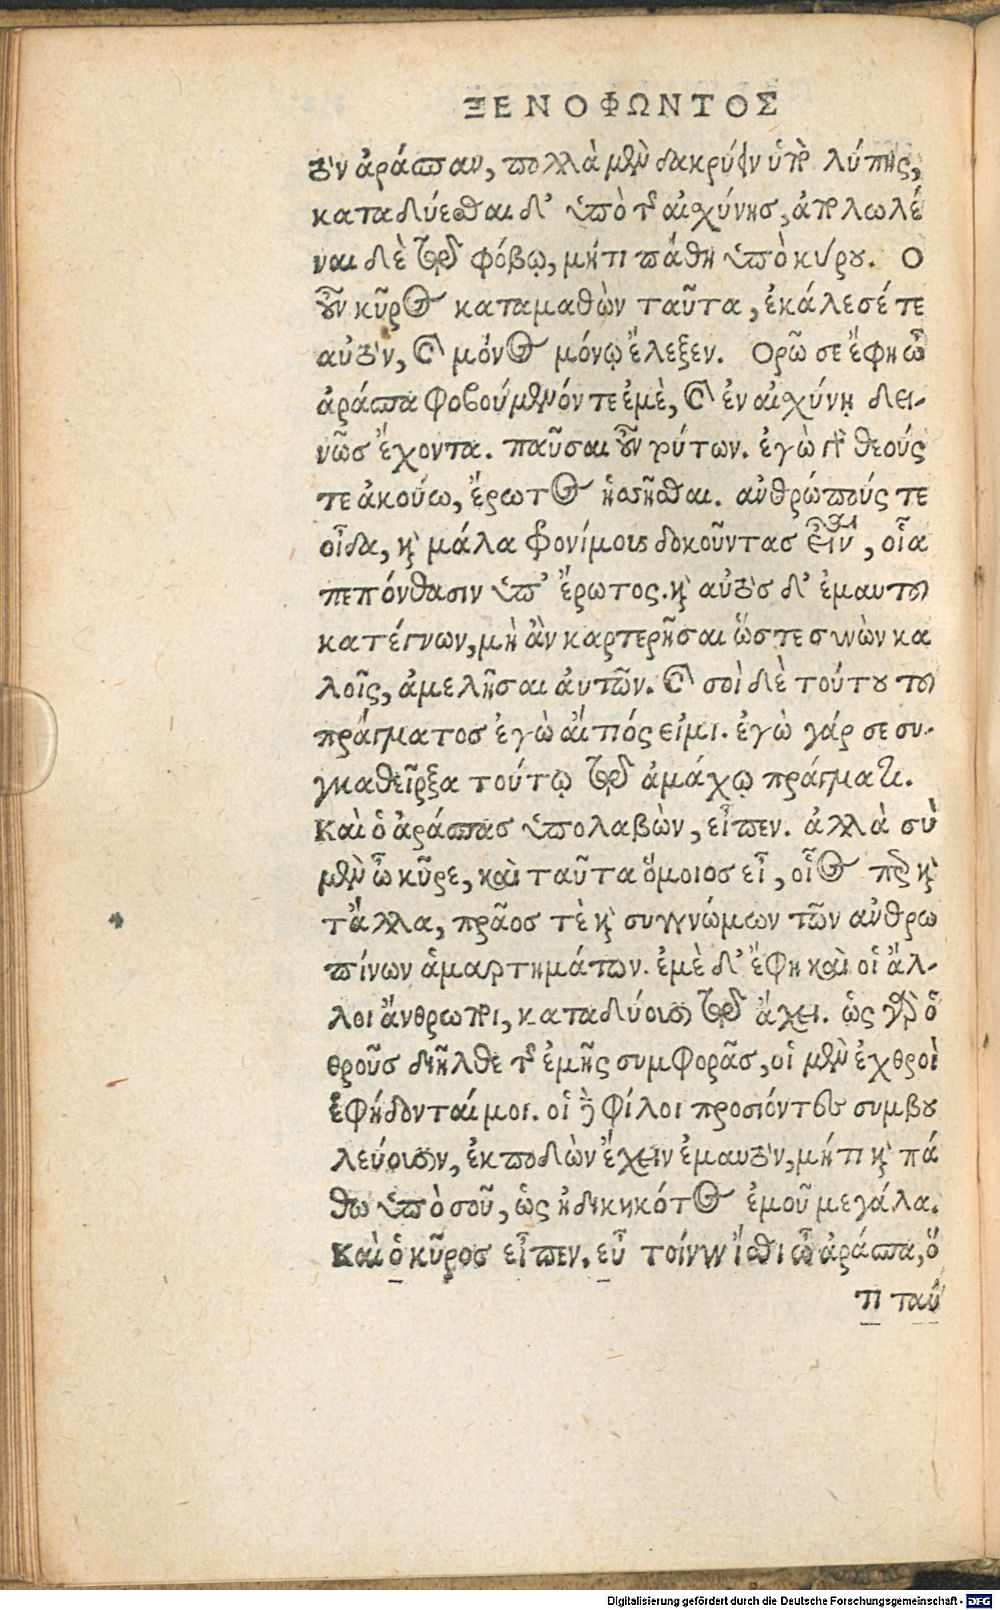 ΞΕΝΟΦΩΝΤΟΣ
τὸν ἀράσπαν, πολλὰ μὲν δακρύειν ὑπὸ λύπης,
καταδύεσθαι δ' ὑπὸ τῆς αἰσχύνης, ἀπολωλέ
ναι δὲ τῷ φόβῳ, μήτι πάθη ὑπὸ κύρου. Ο
οὖν κῦρος καταμαθὼν ταῦτα, ἐκάλεσέ τε
αὐτὸν, καὶ μόνος μόνῳ ἔλεξεν. Ορῶ σε ἔφη ὦ
ἀράσπα φοβούμενόν τε ἐμὲ, καὶ ἐν αἰσχύνῃ δει-
νῶς ἔχοντα. παῦσαι οὖν τούτων. ἐγὼ γὰρ θεούς
τε ἀκούω, ἔρωτος ἡσσῆσθαι. ἀνθρώπους τε
οἶδα, καὶ μάλα φρονίμους δοκοῦντας εἶναι, οἷα
πεπόνθασιν ὑπ' ἔρωτος. καὶ αὐτὸς δ' ἐμαυτοῦ
κατέγνων, μὴ ἂν καρτερῆσαι ὥστε συνὼν κα
λοῖς, ἀμελῆσαι ἀυτῶν. καὶ σοὶ δὲ τούτου τοῦ
πράγματος ἐγὼ αἴτιός εἰμι. ἐγὼ γάρ σε συ-
γκαθεῖρξα τούτῳ τῷ ἀμάχῳ πράγματι.
Καὶ ὁ ἀράσπας ὑπολαβὼν, εἶπεν. ἀλλὰ σὺ
μὲν ὦ κῦρε, καὶ ταῦτα ὅμοιος εἶ, οἷος περ καὶ
τἄλλα, πρᾶος τὲ καὶ συγγνώμων τῶν ἀνθρω
πίνων ἁμαρτημάτων. ἐμὲ δ' ἔφη καὶ οἱ ἄλ-
λοι ἄνθρωποι, καταδύουσι τῷ ἄχει. ὡς γὰρ ὁ
θροῦς διῆλθε τῆς ἐμῆς συμφορᾶς, οἱ μὲν ἐχθροὶ
ἐφήδονταί μοι. οἱ δὲ φίλοι προσιόντες συμβου
λεύουσιν, ἐκποδὼν ἔχειν ἐμαυτὸν, μήτι καὶ πά
θω ὑπὸ σοῦ, ὡς ἠδικηκότος ἐμοῦ μεγάλα.
Καὶ ὁ κῦρος εἶπεν. εὖ τοίνυν ἴσθι ὦ ἀράσπα, ὅ
τι ταύ
Digitalisierung gefördert durch die Deutsche Forschungsgemeinschaft - DFG